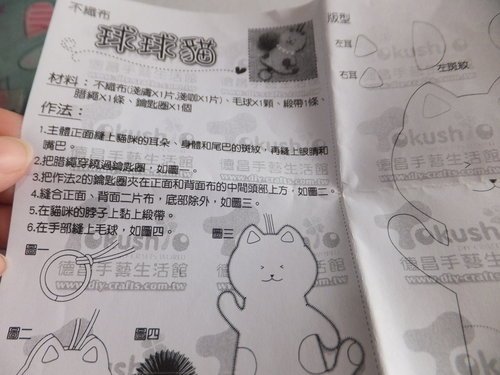 不織布
球球貓
材料：不織布(淺膚X1片,淺咖X1片)、毛球X1顆、緞帶1條、
腊繩X1條、鑰匙圈X1個
作法：
1.主體正面縫上貓咪的耳朵、身體和尾巴的斑紋，再縫上眼睛和
嘴巴。
2.把腊繩穿繞過鑰匙圈，如圖一。
3.把作法2的鑰匙圈夾在正面和背面布的中間頭部上方，如圖二。
4.縫合正面、背面二片布，底部除外，如圖三。
5.在貓咪的脖子上黏上緞帶。
6.在手部縫上毛球，如圖四。
圖一
圖三
圖二
圖四
版型
左耳
右耳
左斑紋
Tokushio
德昌手藝生活館
www.diy-crafts.com.tw